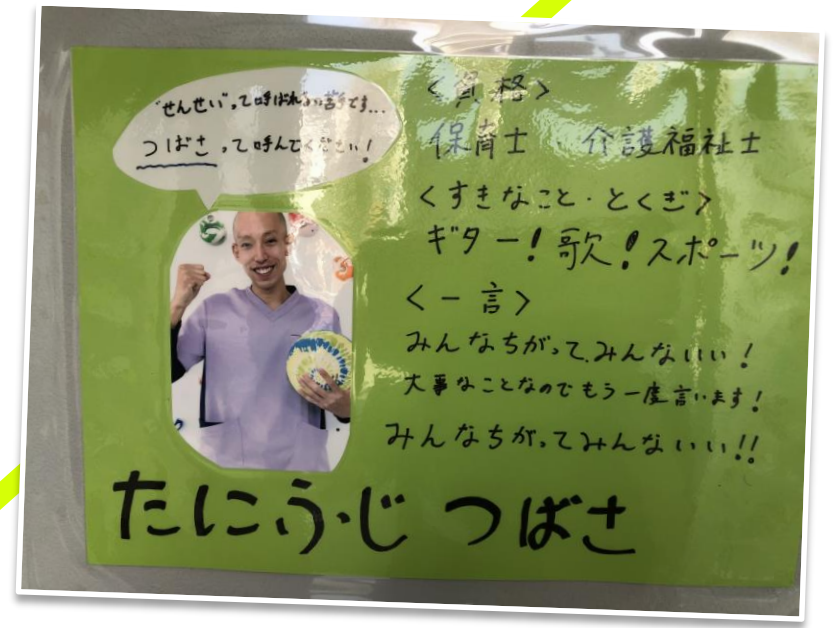 "せんせい"って呼ばれるの苦手です...
つばさって呼んでください!
<資格>
保育士 介護福祉士
<すきなこと・とくぎ>
ギター!歌!スポーツ!
<一言>
みんなちがって、みんないい!
大事なことなのでもう一度言います!
みんなちがってみんないい!!
たにふじ つばさ